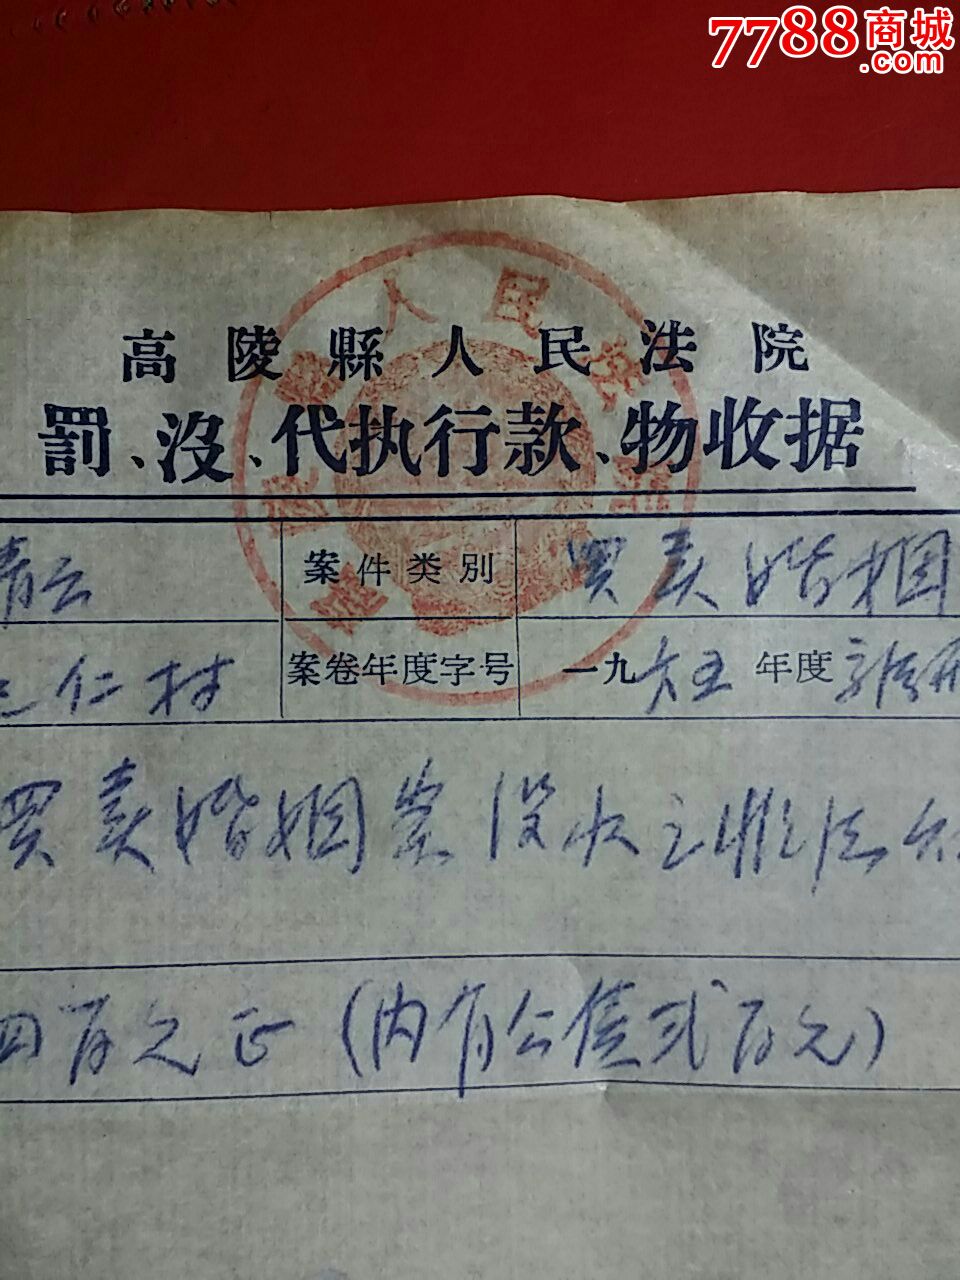 7788商城
.com
高陵縣人民法院
罰、没、代执行款、物收据
青云 案件类別 買卖婚姻
仁村 案卷年度字号 一九六五年度
買卖婚姻案没收之非法
四百元正(内有公债弍百元)